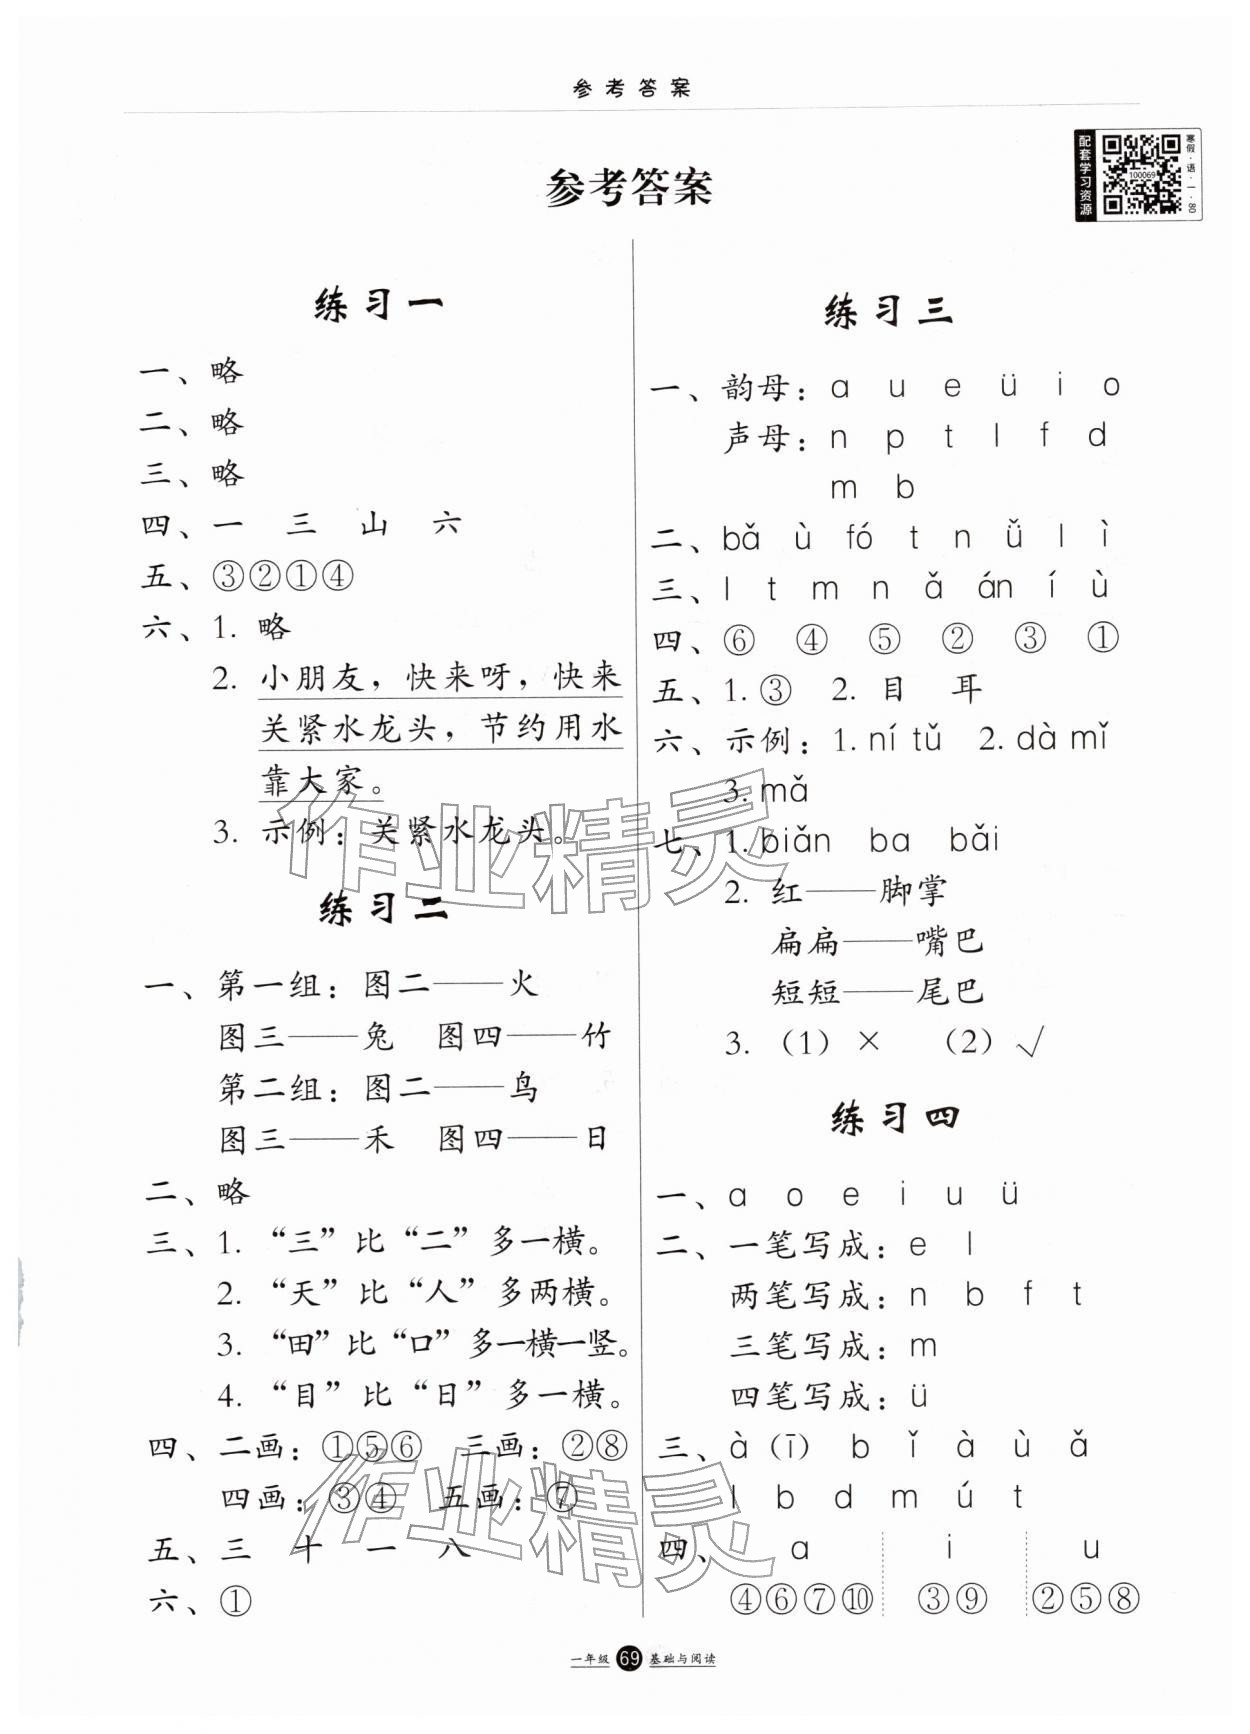 参考答案
配套学习资源
100069
寒假·语·一·80
参考答案
练习一
一、略
二、略
三、略
四、一 三 山 六
五、③②①④
六、1. 略
2. 小朋友，快来呀，快来
关紧水龙头，节约用水
靠大家。
3. 示例：关紧水龙头。
练习二
一、第一组：图二——火
图三——兔 图四——竹
第二组：图二——鸟
图三——禾 图四——日
二、略
三、1. “三”比“二”多一横。
2. “天”比“人”多两横。
3. “田”比“口”多一横一竖。
4. “目”比“日”多一横。
四、二画：①⑤⑥ 三画：②⑧
四画：③④ 五画：⑦
五、三 十 一 八
六、①
练习三
一、韵母：a u e ü i o
声母：n p t l f d
m b
二、bǎ ù fó t n ǚ l ì
三、l t m n ǎ án í ù
四、⑥ ④ ⑤ ② ③ ①
五、1. ③ 2. 目 耳
六、示例：1. ní tǔ 2. dà mǐ
3. mǎ
七、1. biǎn ba bǎi
2. 红——脚掌
扁扁——嘴巴
短短——尾巴
3. （1）× （2）√
练习四
一、a o e i u ü
二、一笔写成：e l
两笔写成：n b f t
三笔写成：m
四笔写成：ü
三、à (ī) b ǐ à ù ǎ
l b d m ú t
四、a i u
④⑥⑦⑩ ③⑨ ②⑤⑧
作业精灵
作业精灵
一年级 69 基础与阅读